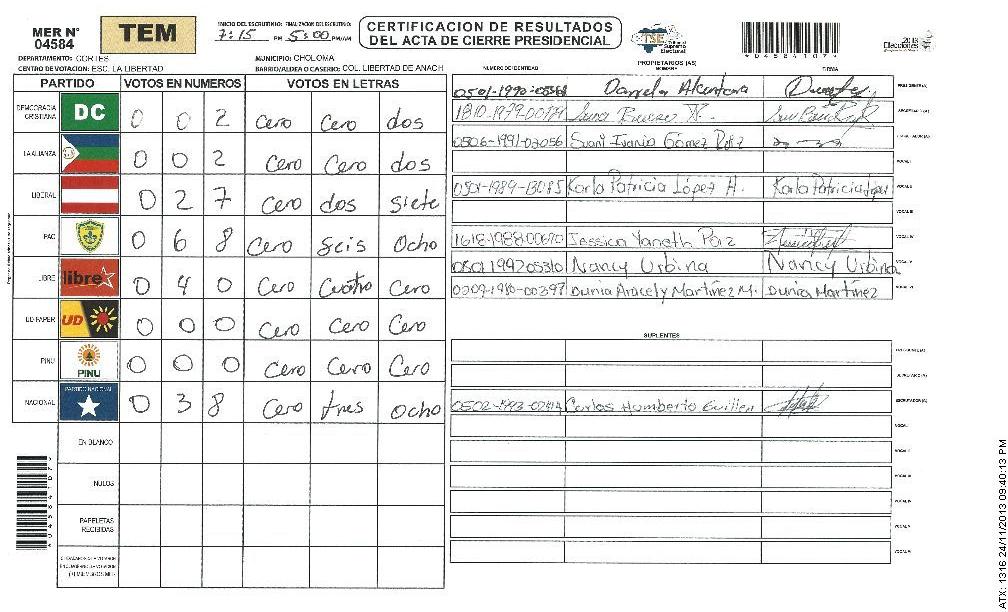 MER N° 04584
TEM
INICIO DEL ESCRUTINIO: 7:15 PM FINALIZACION DEL ESCRUTINIO: 5:00 PM/AM
CERTIFICACION DE RESULTADOS
DEL ACTA DE CIERRE PRESIDENCIAL
TSE Tribunal Supremo Electoral
2013 Elecciones
DEPARTAMENTO: CORTES MUNICIPIO: CHOLOMA
CENTRO DE VOTACION: ESC. LA LIBERTAD BARRIO/ALDEA O CASERIO: COL. LIBERTAD DE ANACH
PARTIDO VOTOS EN NUMEROS VOTOS EN LETRAS
DEMOCRACIA CRISTIANA DC 0 0 2 Cero Cero dos
LA ALIANZA 0 0 2 Cero Cero dos
LIBERAL 0 2 7 Cero dos siete
PAC 0 6 8 Cero Seis Ocho
LIBRE libre 0 4 0 Cero Cuatro Cero
UD-FAPER UD 0 0 0 Cero Cero Cero
PINU PINU 0 0 0 Cero Cero Cero
NACIONAL PARTIDO NACIONAL 0 3 8 Cero tres Ocho
EN BLANCO
NULOS
PAPELETAS RECIBIDAS
PROPIETARIOS (AS)
NUMERO DE IDENTIDAD NOMBRE FIRMA
Daniela Alcantara PRESIDENTE(A)
SECRETARIO(A)
0506-1991-02056 Suani Ivania Gómez ESCRUTADOR(A)
VOCAL I
0501-1989-13085 Karla Patricia López H. Karla Patricia López VOCAL II
VOCAL III
1618-1988-00670 Jessica Yaneth Paz VOCAL IV
0501 1992 05310 Nancy Urbina Nancy Urbina VOCAL V
0209-1980-00397 Dunia Aracely Martínez M. Dunia Martínez VOCAL VI
SUPLENTES
PRESIDENTE(A)
SECRETARIO(A)
Carlos Humberto Guillen ESCRUTADOR(A)
VOCAL I
VOCAL II
VOCAL III
VOCAL IV
VOCAL V
VOCAL VI
ATX: 1316 24/11/2013 09:40:13 PM